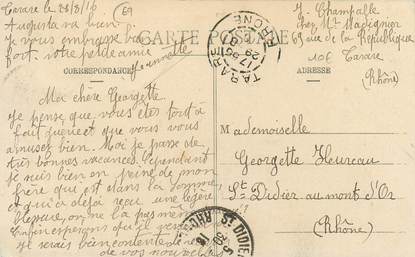 Tarare le 28/8/16
Augusta va bien
Je vous embrasse bien
fort. votre petite amie
Jeannette
69
J. Champalle
chez Mme Matignier
63 rue de la République
Tarare
(Rhône)
CARTE POSTALE
TARARE
RHONE
CORRESPONDANCE
ADRESSE
Ma chère Georgette
Je pense que vous êtes tout à
fait guérie et que vous vous
amusez bien. Moi je passe de
très bonnes vacances. Cependant
je suis bien en peine de mon
frère qui est dans la Somme
et qui a déjà reçu une légère
blessure, on ne l'a pas même
Enfin espérons que
Je serais bien contente de
de vos nouvelles
Mademoiselle
Georgette Heureau
St Didier au mont d'Or
(Rhône)
ST DIDIER